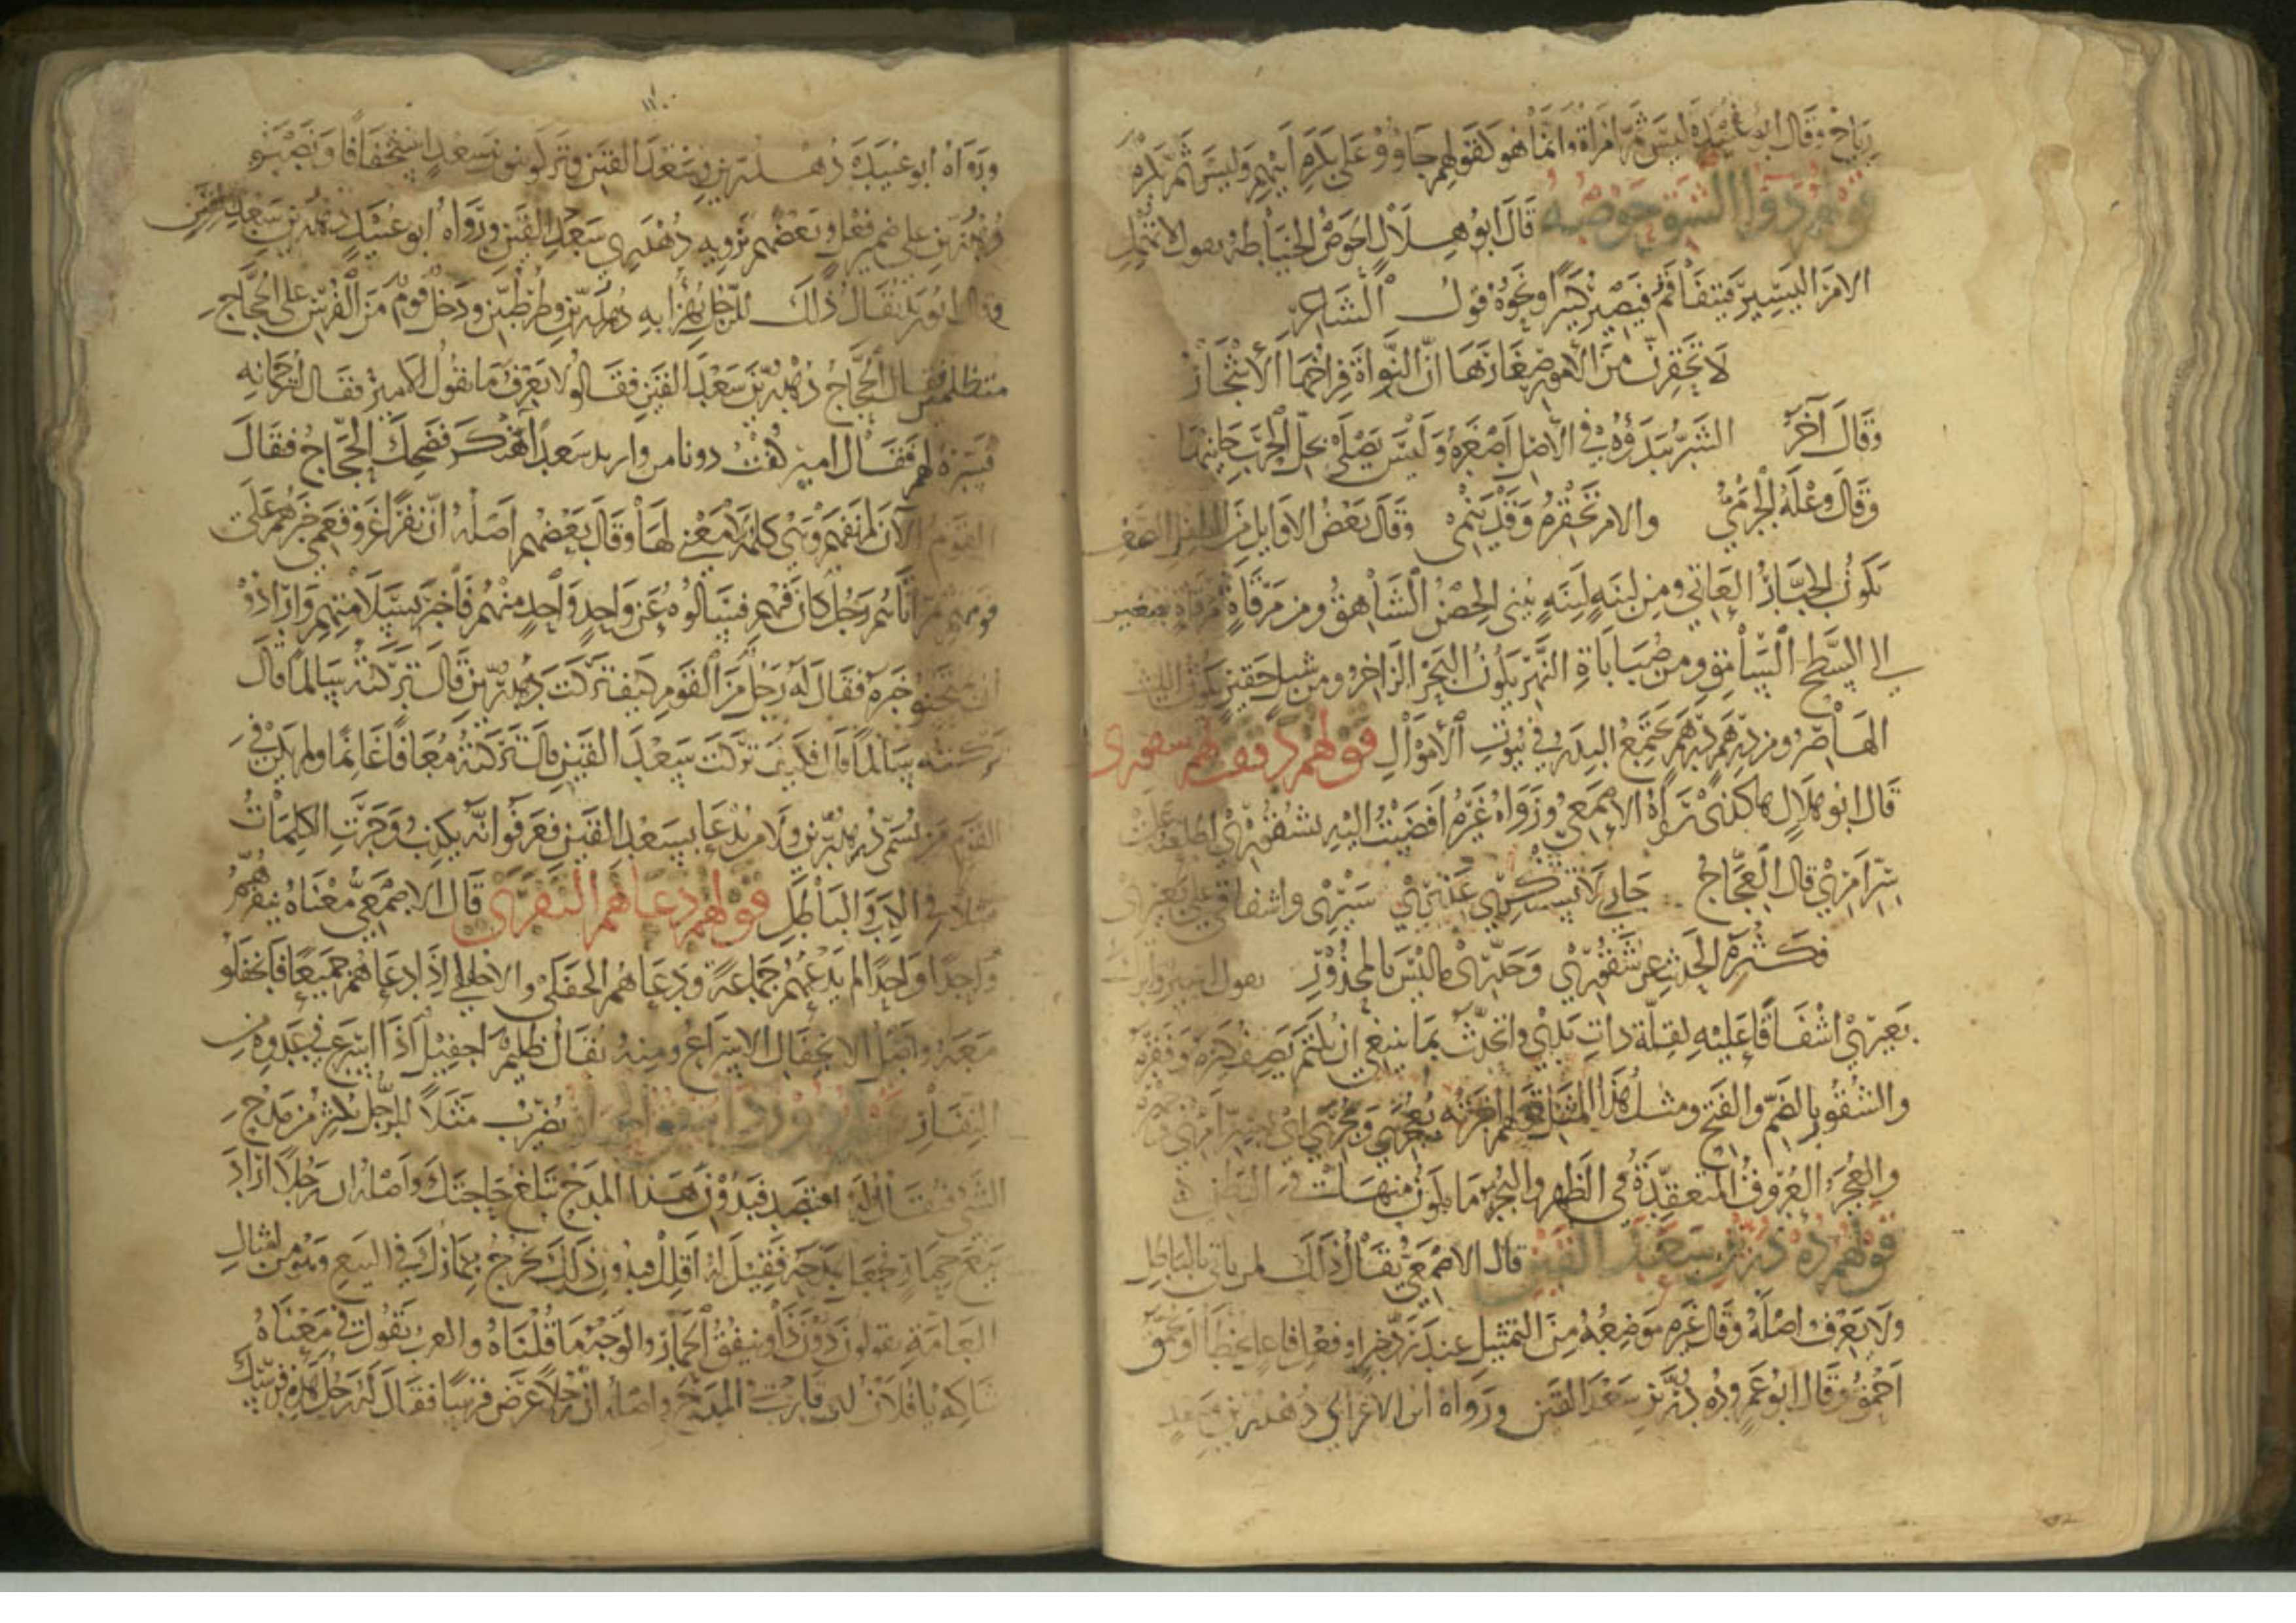 رياح وقال أبو عبيدة ليس ثم امرأة وإنما هو كقولهم جاؤوا على بكرة أبيهم وليس ثم بكرة
قولهم دواء الشق حوصه قال أبو هلال الحوص الخياطة يقول لا تهمل
الأمر اليسير فيتفاقم فيصير كبيرا ونحوه قول الشاعر
لا تحقرن من الأمور صغارها إن النواة فراخها الأشجار
وقال آخر الشر يبدؤه في الأصل أصغره وليس يصلى بحل الحرب جانيها
وقال وعلة الجرمي والأمر تحقره وقد ينمي وقال بعض الأوائل من
يكون الجبار العاتي ومن لبنة لبنة يبنى الحصن الشاهق ومن مرقاة مرقاة يصير
إلى السطح السامق ومن صبابات النهر يكون البحر الزاخر ومن شبل حقير يكون الليث
الهاصر ومن درهم درهم تجتمع البدر في بيوت الأموال قولهم
قال أبو هلال هكذى رواه الأصمعي ورواه غيره أفضيت إليه بشقوري
سر أمري قال العجاج جاري لا تستنكري عذيري سيري وإشفاقي على بعيري
فكثرة الحديث عن شقوري وحذري ما ليس بالمحذور يقول
بعيري إشفاقا عليه لقلة ذات يدي وأتحدث بما ينبغي أن يكتم يصف كبره وفقره
والشقور بالضم والفتح ومثل هذا المثل قولهم أخبرته بعجري وبجري أي
والعجر العروق المتعقدة في الظهر والبجر ما يكون منها في البطن
قولهم ده درين سعد القين قال الأصمعي يقال ذلك لمن يأتي بالباطل
ولا يعرف أصله وقال غيره موضعه من التمثيل عند رد خبر أو فعل فاعل يخطأ أو يحمق
أحمق وقال أبو عمرو ده درين سعد القين ورواه ابن الأعرابي دهدرين سعد
ورواه أبو عبيدة دهدرين وسعد القين وتركوا تنوين سعد استخفافا ونصبوا
دهدرين على ضمير فعل وبعضهم يرويه دهدري سعد القين ورواه أبو عبيد دهدرين سعد القين
وقال أبو زيد يقال ذلك للرجل يهزأ به دهدرين وطرطبين ودخل قوم من الفرس على الحجاج
متظلمين فقال الحجاج دهدرين سعد القين فقالوا لا نعرف ما يقول الأمير فقال لترجمانه
فسره لهم فقال أمير كفت سعد فضحك الحجاج فقال
القوم الآن لم تفهم وهي كلمة لا معنى لها وقال بعضهم أصله أن نفرا غزوا فعمي خبرهم على
قومهم ثم أتاهم رجل كان فيهم فسألوه عن واحد واحد منهم فأخبر بسلامتهم وأرادوا
أن يمتحنوا خبره فقال له رجل من القوم كيف تركت دهدرين قال تركته سالما قال
تركته سالما قال فكيف تركت سعد القين قال تركته معافا غانما ولم يكن في
القوم من يسمى دهدرين ولا من يدعا بسعد القين فعرفوا أنه يكذب وجرت الكلمات
مثلا في الكذب والباطل قولهم دعاهم النقرى قال الأصمعي معناه ينقرهم
واحدا واحدا لم يدعهم جماعة ودعاهم الجفلى والأجفلى إذا دعاهم جميعا فانجفلوا
معه وأصل الانجفال الإسراع ومنه يقال ظليم إجفيل إذا أسرع في عدوه من
النفار قولهم دون ذا ينفق الحمار يضرب مثلا للرجل يكثر من مدح
الشيء فيقال له اقتصد فبدون هذا المدح تبلغ حاجتك وأصله أن رجلا أراد
بيع حمار فجعل يمدحه فقيل له أقلل فبدون ذلك يخرج حمارك في البيع وهو من أمثال
العامة يقولون دون ذا وينفق الحمار والوجه ما قلناه والعرب تقول في معناه
شاكه أبا فلان أي قارب في المدح وأصله أن رجلا عرض فرسا فقال له رجل هذه فرسك